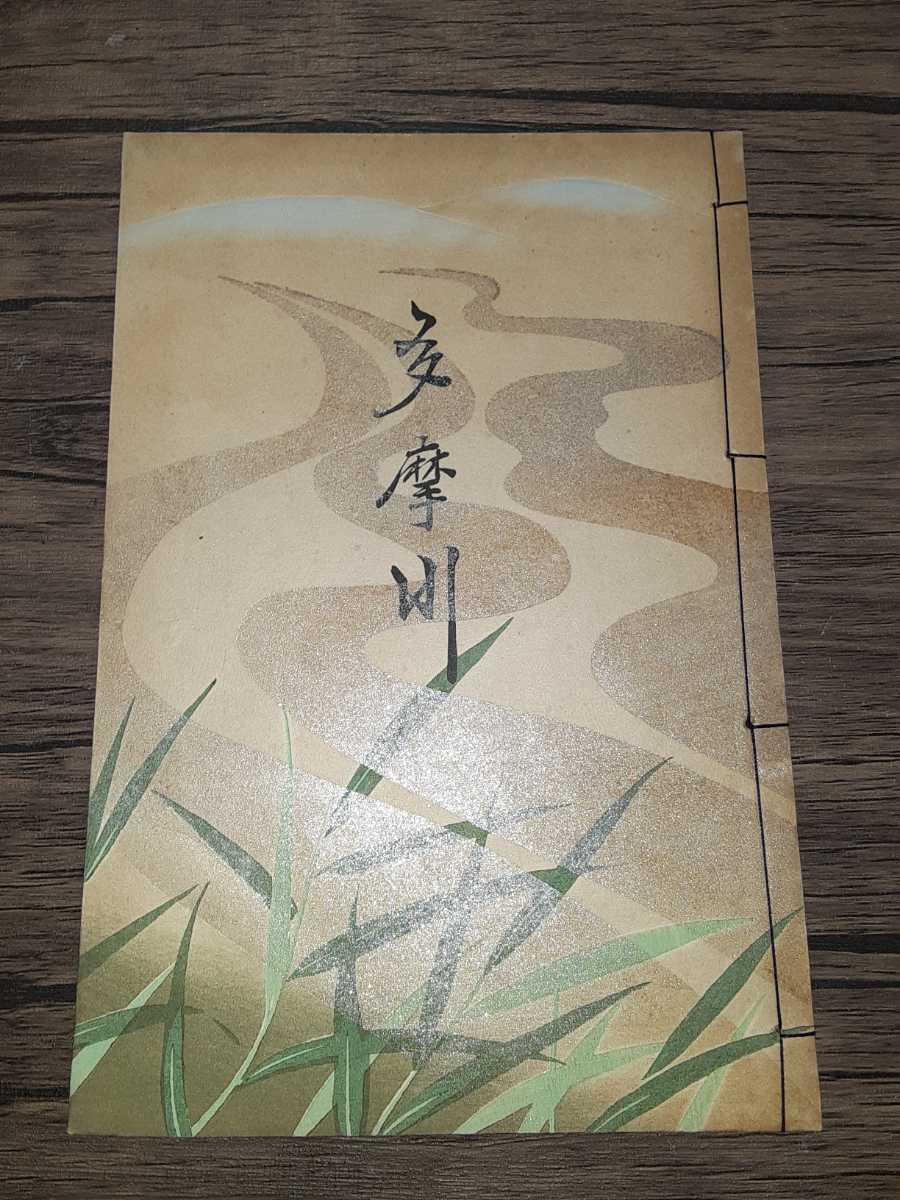 多摩川